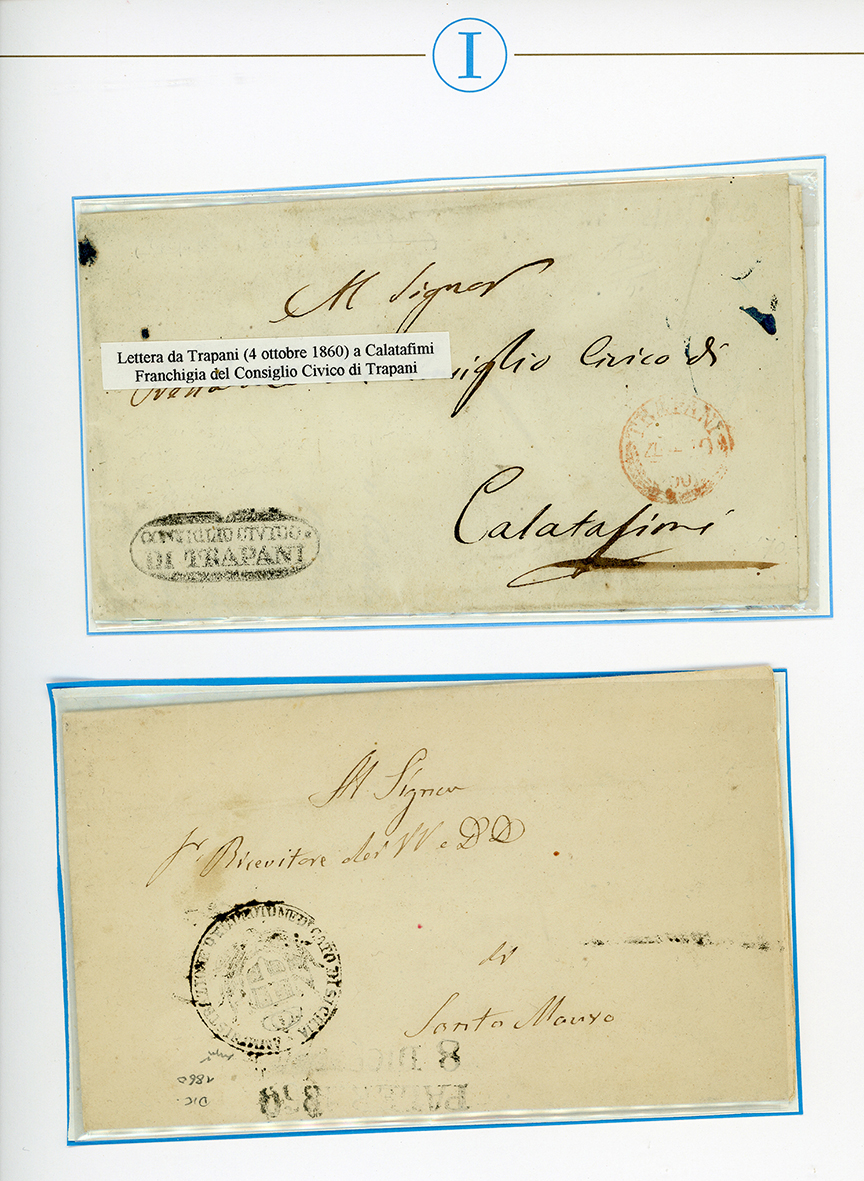 I
Al Signor
Lettera da Trapani (4 ottobre 1860) a Calatafimi
Franchigia del Consiglio Civico di Trapani
Civico di
TRAPANI
Calatafimi
CONSIGLIO CIVICO
DI TRAPANI
Al Signor
Ricevitore dei VV e DD
di
Santo Mauro
DI SICILIA
8 DIC
DIC.
1860